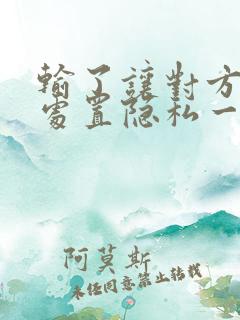 輸了讓對方
處置隐私一
阿莫斯
未经同意禁止转载